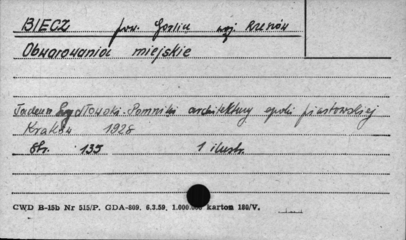 BIECZ pow. Gorlice woj. Rzeszów
Obwarowania miejskie
Tadeusz Szydłowski. Pomniki architektury epoki piastowskiej
Kraków 1928
Str. 135 1 ilustr.
CWD B-15b Nr 515/P. GDA-809. 6.3.59. 1.000.000 karton 180/V.